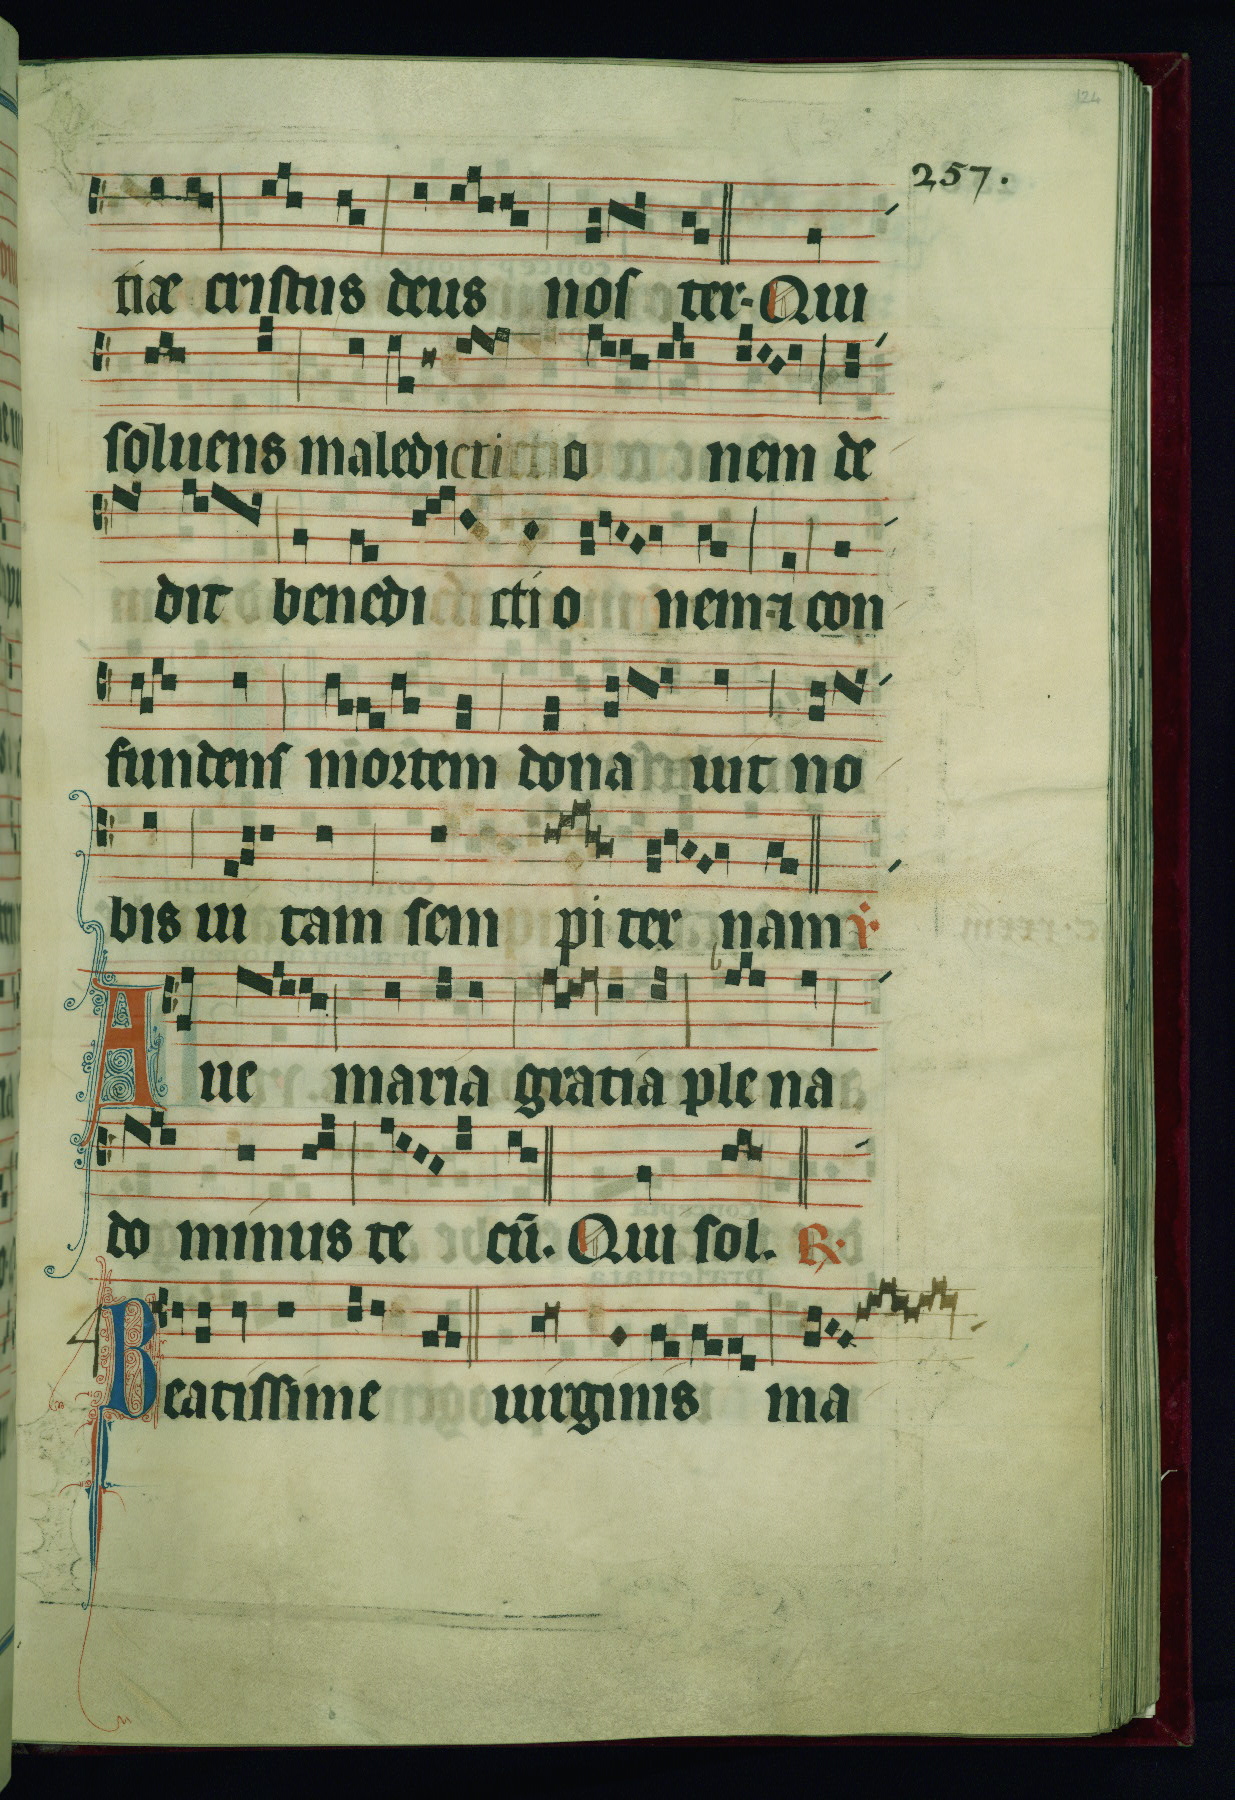 124
257.
tiæ cristus deus nos ter. Qui
soluens maledicti o nem de
dit benedi ctio nem ⁊ con
fundens mortem dona uit no
bis ui tam sem pi ter nam ℣.
Aue maria gratia ple na
do minus te cū. Qui sol. ℟.
4 Beatissime uirginis ma